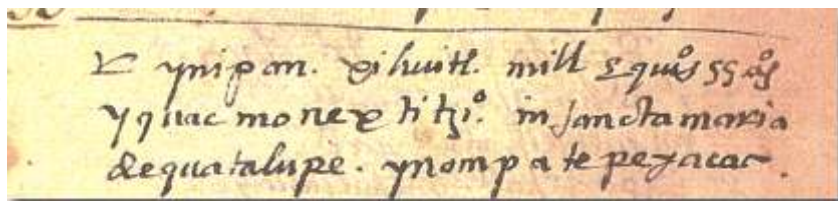 ynipan. xihuitl. mill & quiºs 55 aºs
yquac monextitziº. in sancta maria
de quatalupe. ynompa tepeyacac.